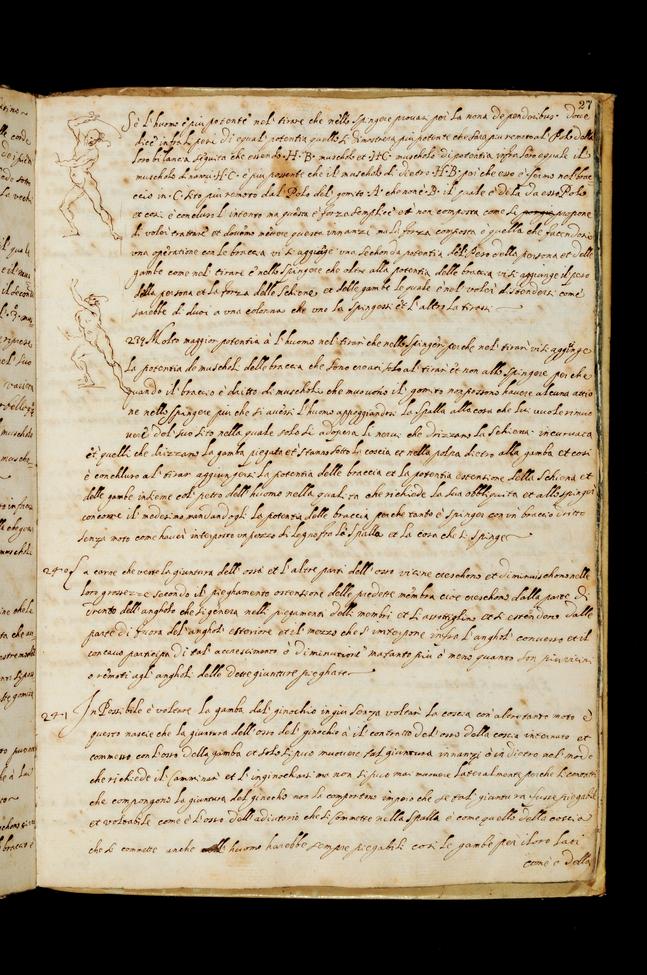 27
Se l'huomo è più potente nel tirare che nello spingere provasi per la nona de ponderibus dove
dice infra li pesi di equal potentia quello si dimostrera più potente che sara piu remoto al Polo della
loro bilancia seguita che essendo .H.B. muscholo et .H.C. muscholo di potentia infra loro equale il
muscholo dinanzi .H.C. è piu possente che il muscholo di dietro .H.B. poi che esso è fermo nel brac
cio in .C. sito piu remoto dal Polo del gomito .A. che non è .B. il quale è di la da esso Polo
et cosi è concluso l'intento ma questa è forza semplice et non composta come si propone
di voler trattare et dovemo mettere queste innanzi ma la forza composta è quella che facendosi
una operatione con le braccia vi si aggiugne una seconda potentia del peso della persona et delle
gambe come nel tirare è nello spingere che oltre alla potentia delle braccia vi si aggiunge il peso
della persona et la forza delle schiene et delle gambe le quale è nel voler distendersi come
sarebbe di duoi a una colonna che uno la spingessi et l'altro la tirassi
239 Molto maggior potentia à l'huomo nel tirar che nello spinger perche nel tirar vi si aggiunge
la potentia de muscholi delle braccia che sono creati solo al tirar et non allo spingere perche
quando il braccio è diritto di muscholi che muovono il gomito non possono havere alcuna attio
ne nello spingere piu che si avessi l'huomo appoggiando la spalla alla cosa che lui vuole rimuo
vere del suo sito nella quale solo si adopera li nervi che drizzano la schiena incurvata
et quelli che drizzano la gamba piegata et stanno sotto la coscia et nella polpa dietro alla gamba et cosi
è concluso al tirar aggiungersi la potentia delle braccia et la potentia estensione della schiena et
delle gambe insieme col petto dell'huomo nella qualità che richiede la sua obbliquità et allo spinger
concorre il medesimo mancandogli la potenza delle braccia perche tanto è spinger con un braccio dritto
senza moto come haver interposto un pezzo di legno fra la spalla et la cosa che si spinge
240 La carne che veste la giuntura dell'ossi et l'altre parti dell'osso vicine creschono et diminuischono nelle
loro grossezze secondo il piegamento o stensione delle predette membra cioe creschono dalla parte di
drento dell'angholo che si genera nelli piegamenti delli membri et si assottigliano et si estendono dalla
parte di fuora del'anghol esteriore et il mezzo che s'interpone infra l'anghol convesso et il
concavo participa di tal accrescimento o diminutione ma tanto più o meno quanto son piu vicini
o remoti agli angholi delle dette giunture pieghate
241 Impossibile è voltare la gamba dal ginochio in giu senza voltar la coscia con altrettanto moto è
questo nascie che la giuntura dell'osso del ginochio à il contatto del'osso della coscia internato et
commesso con l'osso della gamba et solo si puo muovere tal giuntura innanzi o in dietro nel modo
che richiede il camminar et l'inginochiarsi ma non si puo mai muovere lateralmente perche li contatti
che compongono la giuntura del ginochio non lo comportono impero che se tal giuntura fusse piegabile
et voltabile come è l'osso dell'adiutorio che si commette nella spalla è come quello della coscia
che si commette anche huomo harebbe sempre piegabili cosi le gambe per li loro lati
come è dalla